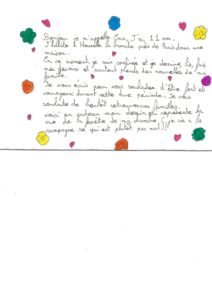 Bonjour je m'appelle J'ai 11 ans.
J'habite à la près de dans une
maison.
En ce moment je suis confinée et je dessine, lis, fais
mes devoirs et surtout prends des nouvelles de ma
famille.
Je vous écris pour vous souhaiter d'être fort et
courageux durant cette dure période. Je vous
souhaite de bientôt retrouver vos familles.
Voici en cadeau mon dessin qui représente la
vue de la fenêtre de ma chambre je vis à la
campagne ce qui est plutôt pas mal !